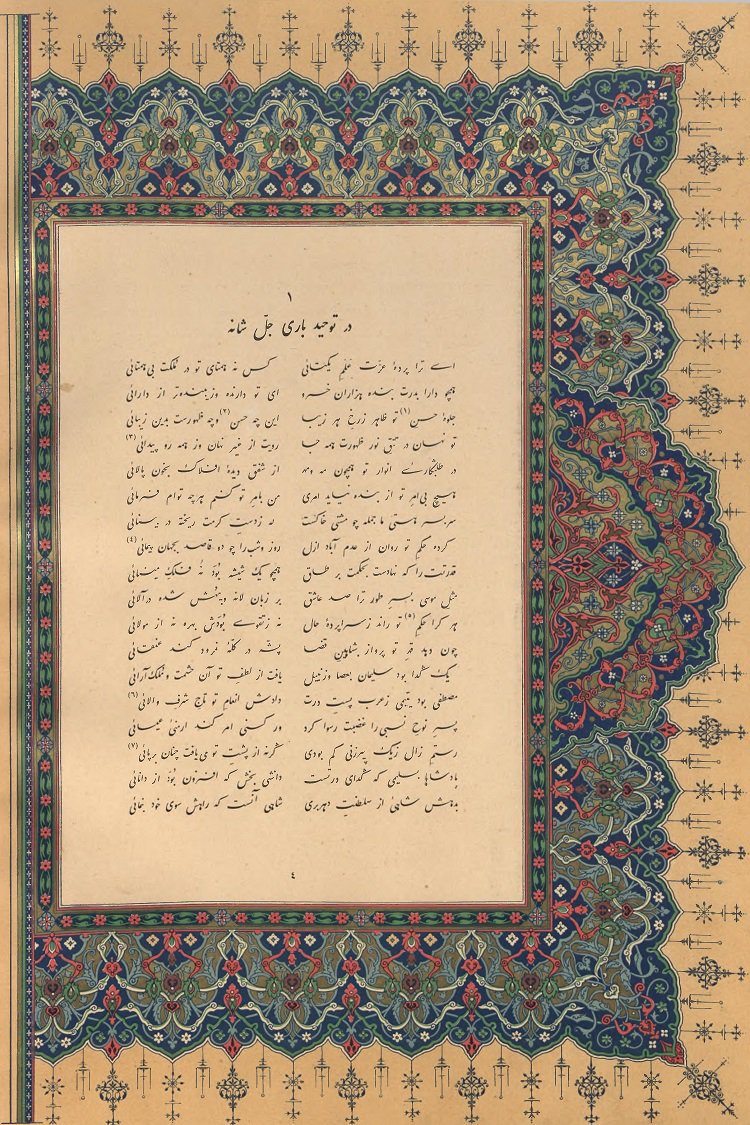 ۱
در توحید باری جلّ شانه
اے ترا پردهٔ عزّت عَلَمِ یکتائی کس نہ همتای تو در مُلکت بی‌همتائی
همچو دارا بدرت بنده هزاران خسرو ای تو دارنده و زیبنده‌تر از دارائی
جلوهٔ حسن (۱) تو ظاهر ز رخِ هر زیبا این چه حسن (۲) و چه ظهورست بدین زیبائی
تو نهان در تتق نور ظهورت همه جا رویت از غیر نهان وز همه رو پیدائی (۳)
در طلبگارے انوار تو همچون مه و مهر از شفق دیدهٔ افلاک بخون پالائی
هیچ بی‌امرِ تو از بنده نیاید امری من بامرِ تو کنم هرچه توام فرمائی
سربسر هستی ما جمله چو مشتی خاکست که ز دستِ کرمت ریخته در پهنائی
کرده حکمِ تو روان از عدم آباد ازل روز و شب را چو دو قاصد بجهان پیمائی (٤)
قدرتت را که نهادست بحکمت بر طاق همچو یک شیشه بُوَد نُه فلک مینائی
مثل موسی بسرِ طور ترا صد عاشق بر زبان لانه و بینش شده در آلائی
هر کرا حکمِ (٥) تو راند ز سراپردهٔ حال نه ز تقوے بُوَدش بهره نه از مولائی
چون دهد قدرِ تو پرواز بشاهین قضا پشّه در کلّهٔ نمرود کند عنقائی
یک گدا بود سلیمان بعصا و زنبیل یافت از لطف تو آن حشمت و مُلک‌آرائی
مصطفی بود یتیمی ز عرب پست درت دادش انعامِ تو تاجِ شرف والائی (٦)
پسرِ نوح نسبی را غضبت رسوا کرد ور کسی امر کند ارنئ عیسائی
رستمِ زال ز یک پیرزنی کم بودی گرنه از پشتِ تو می‌یافت چنان برنائی (۷)
پادشاها بسلیمی که گدای درِ تست دانشی بخش که افزون بُوَد از دانائی
بدهش شاهئ از سلطنتِ دهر بری شاهی آنست که راهش سوی خود بنمائی
٤